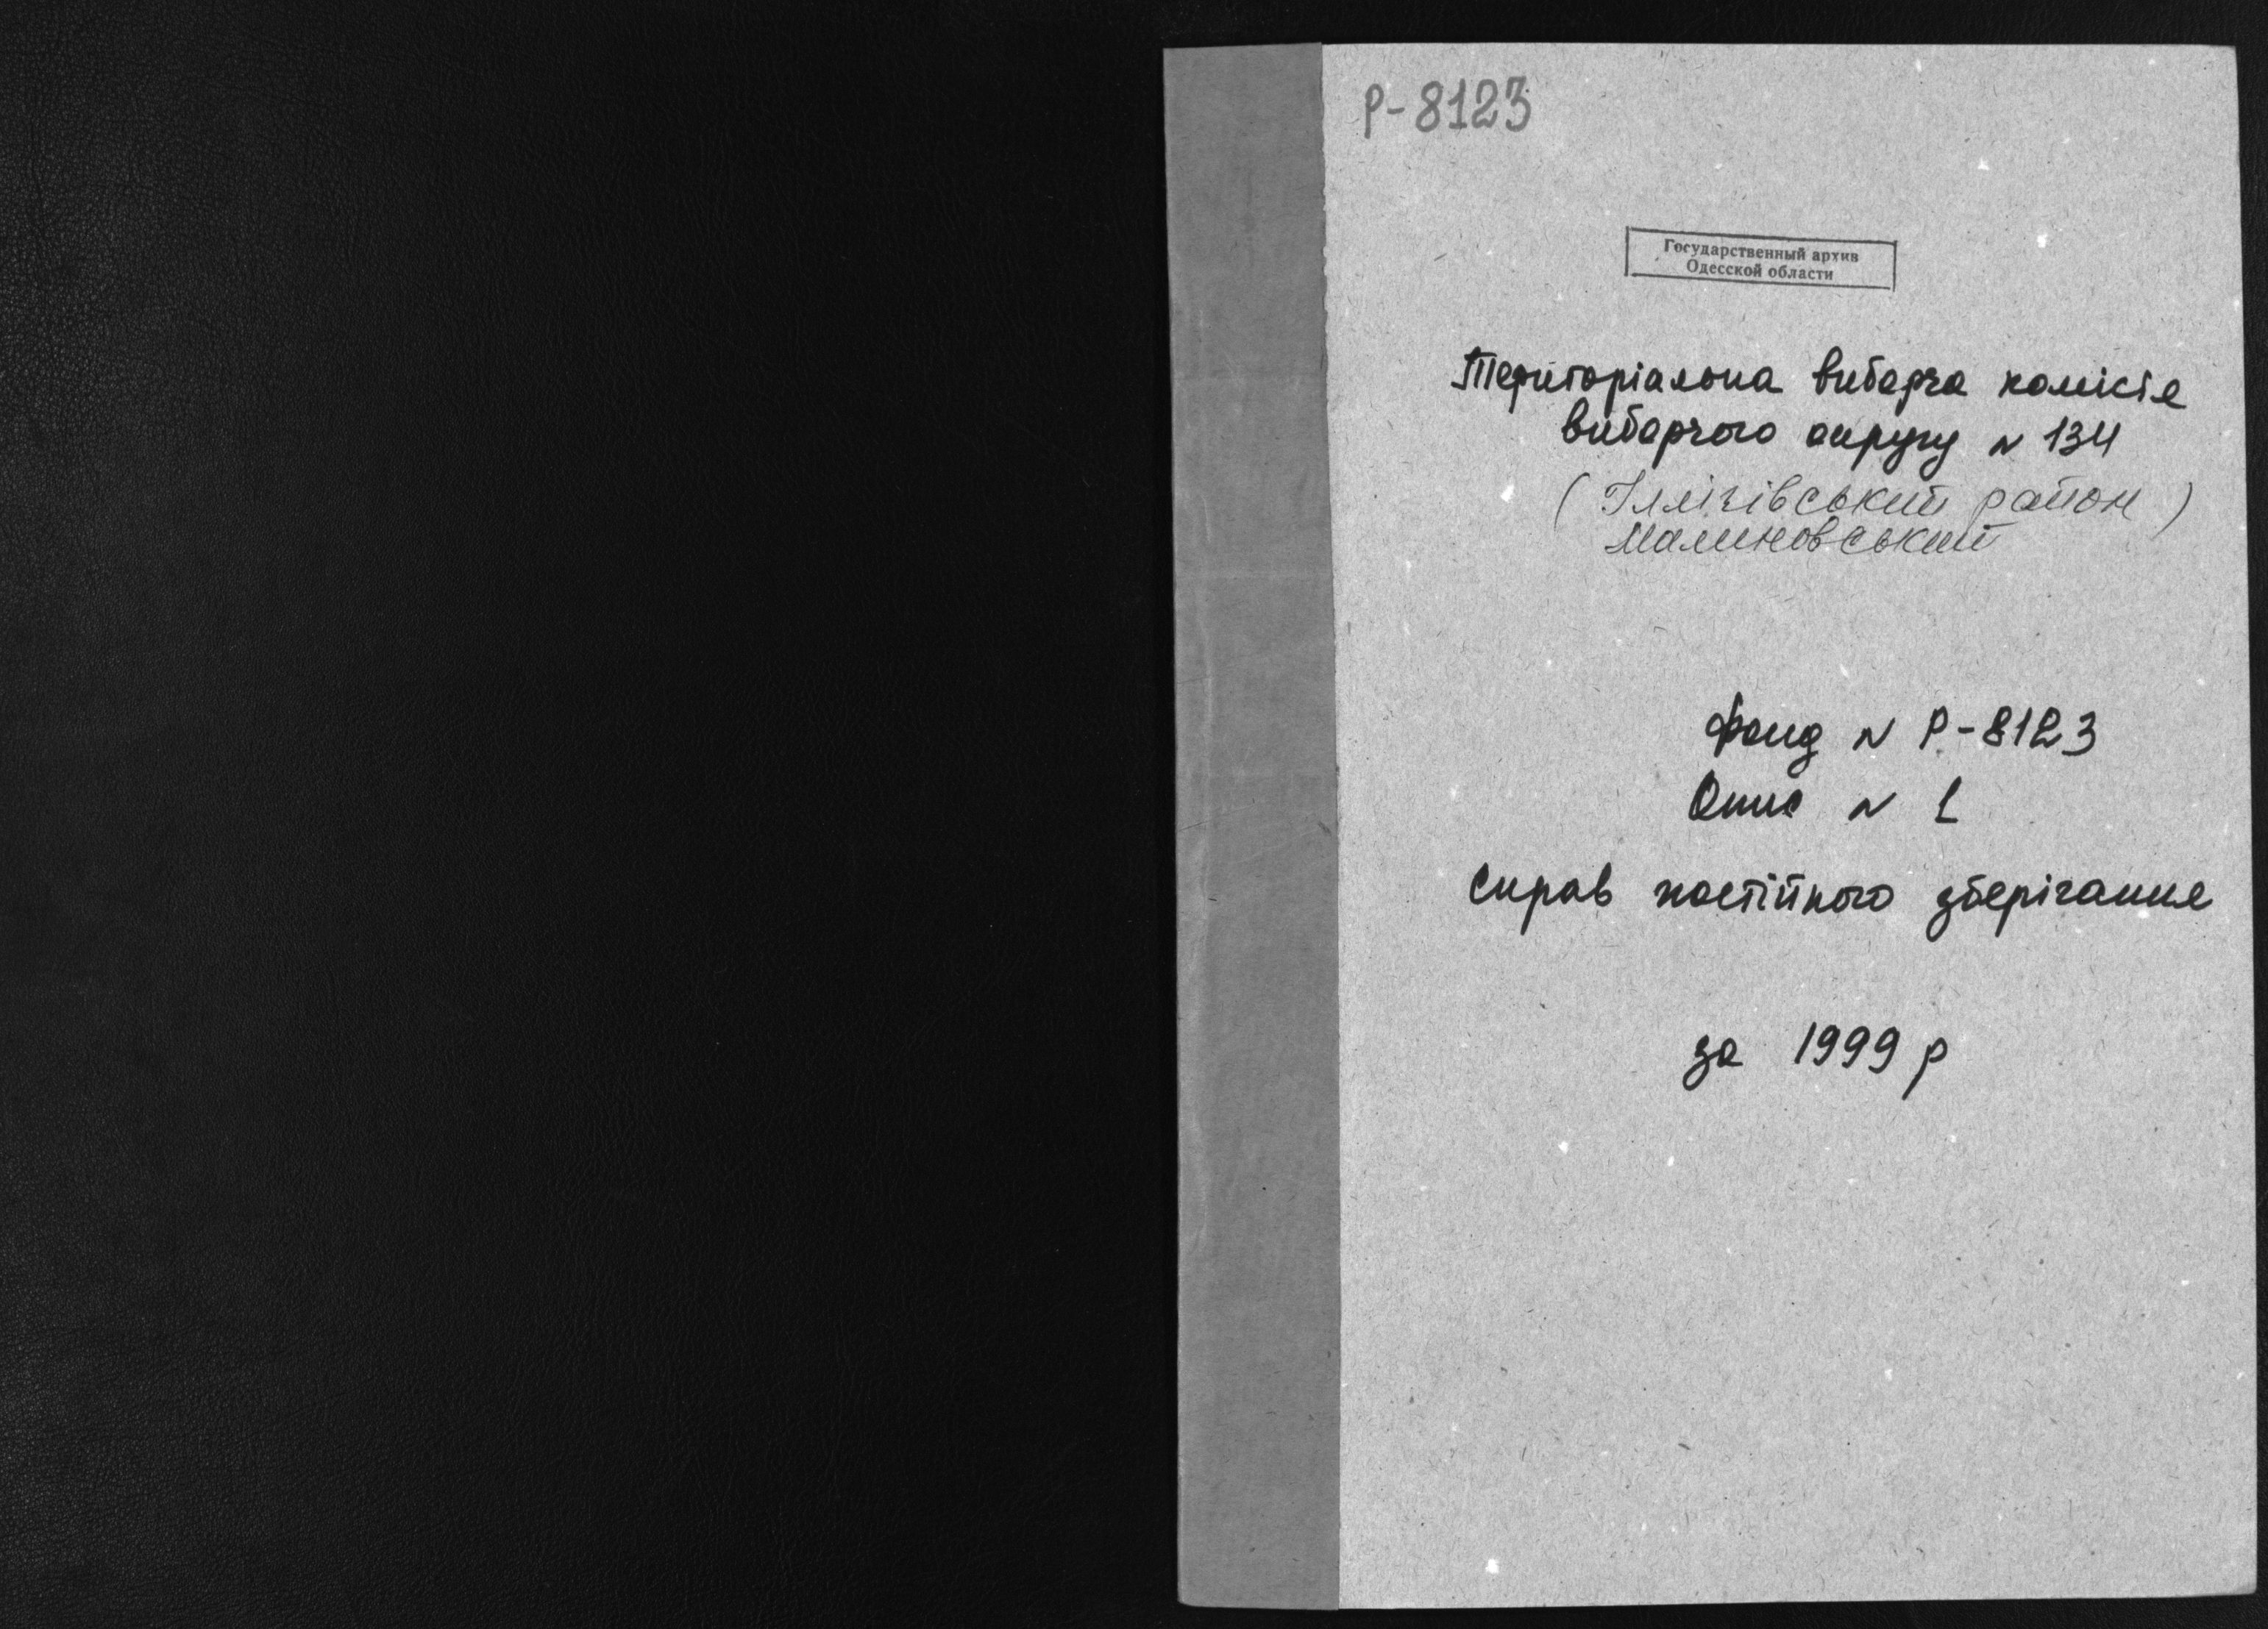 Р-8123
Государственный архив
Одесской области
Територіальна виборча комісія
виборчого округу N 134
(Іллічівський район)
Малиновський
Фонд N Р-8123
Опис N 1
справ постійного зберігання
за 1999 р